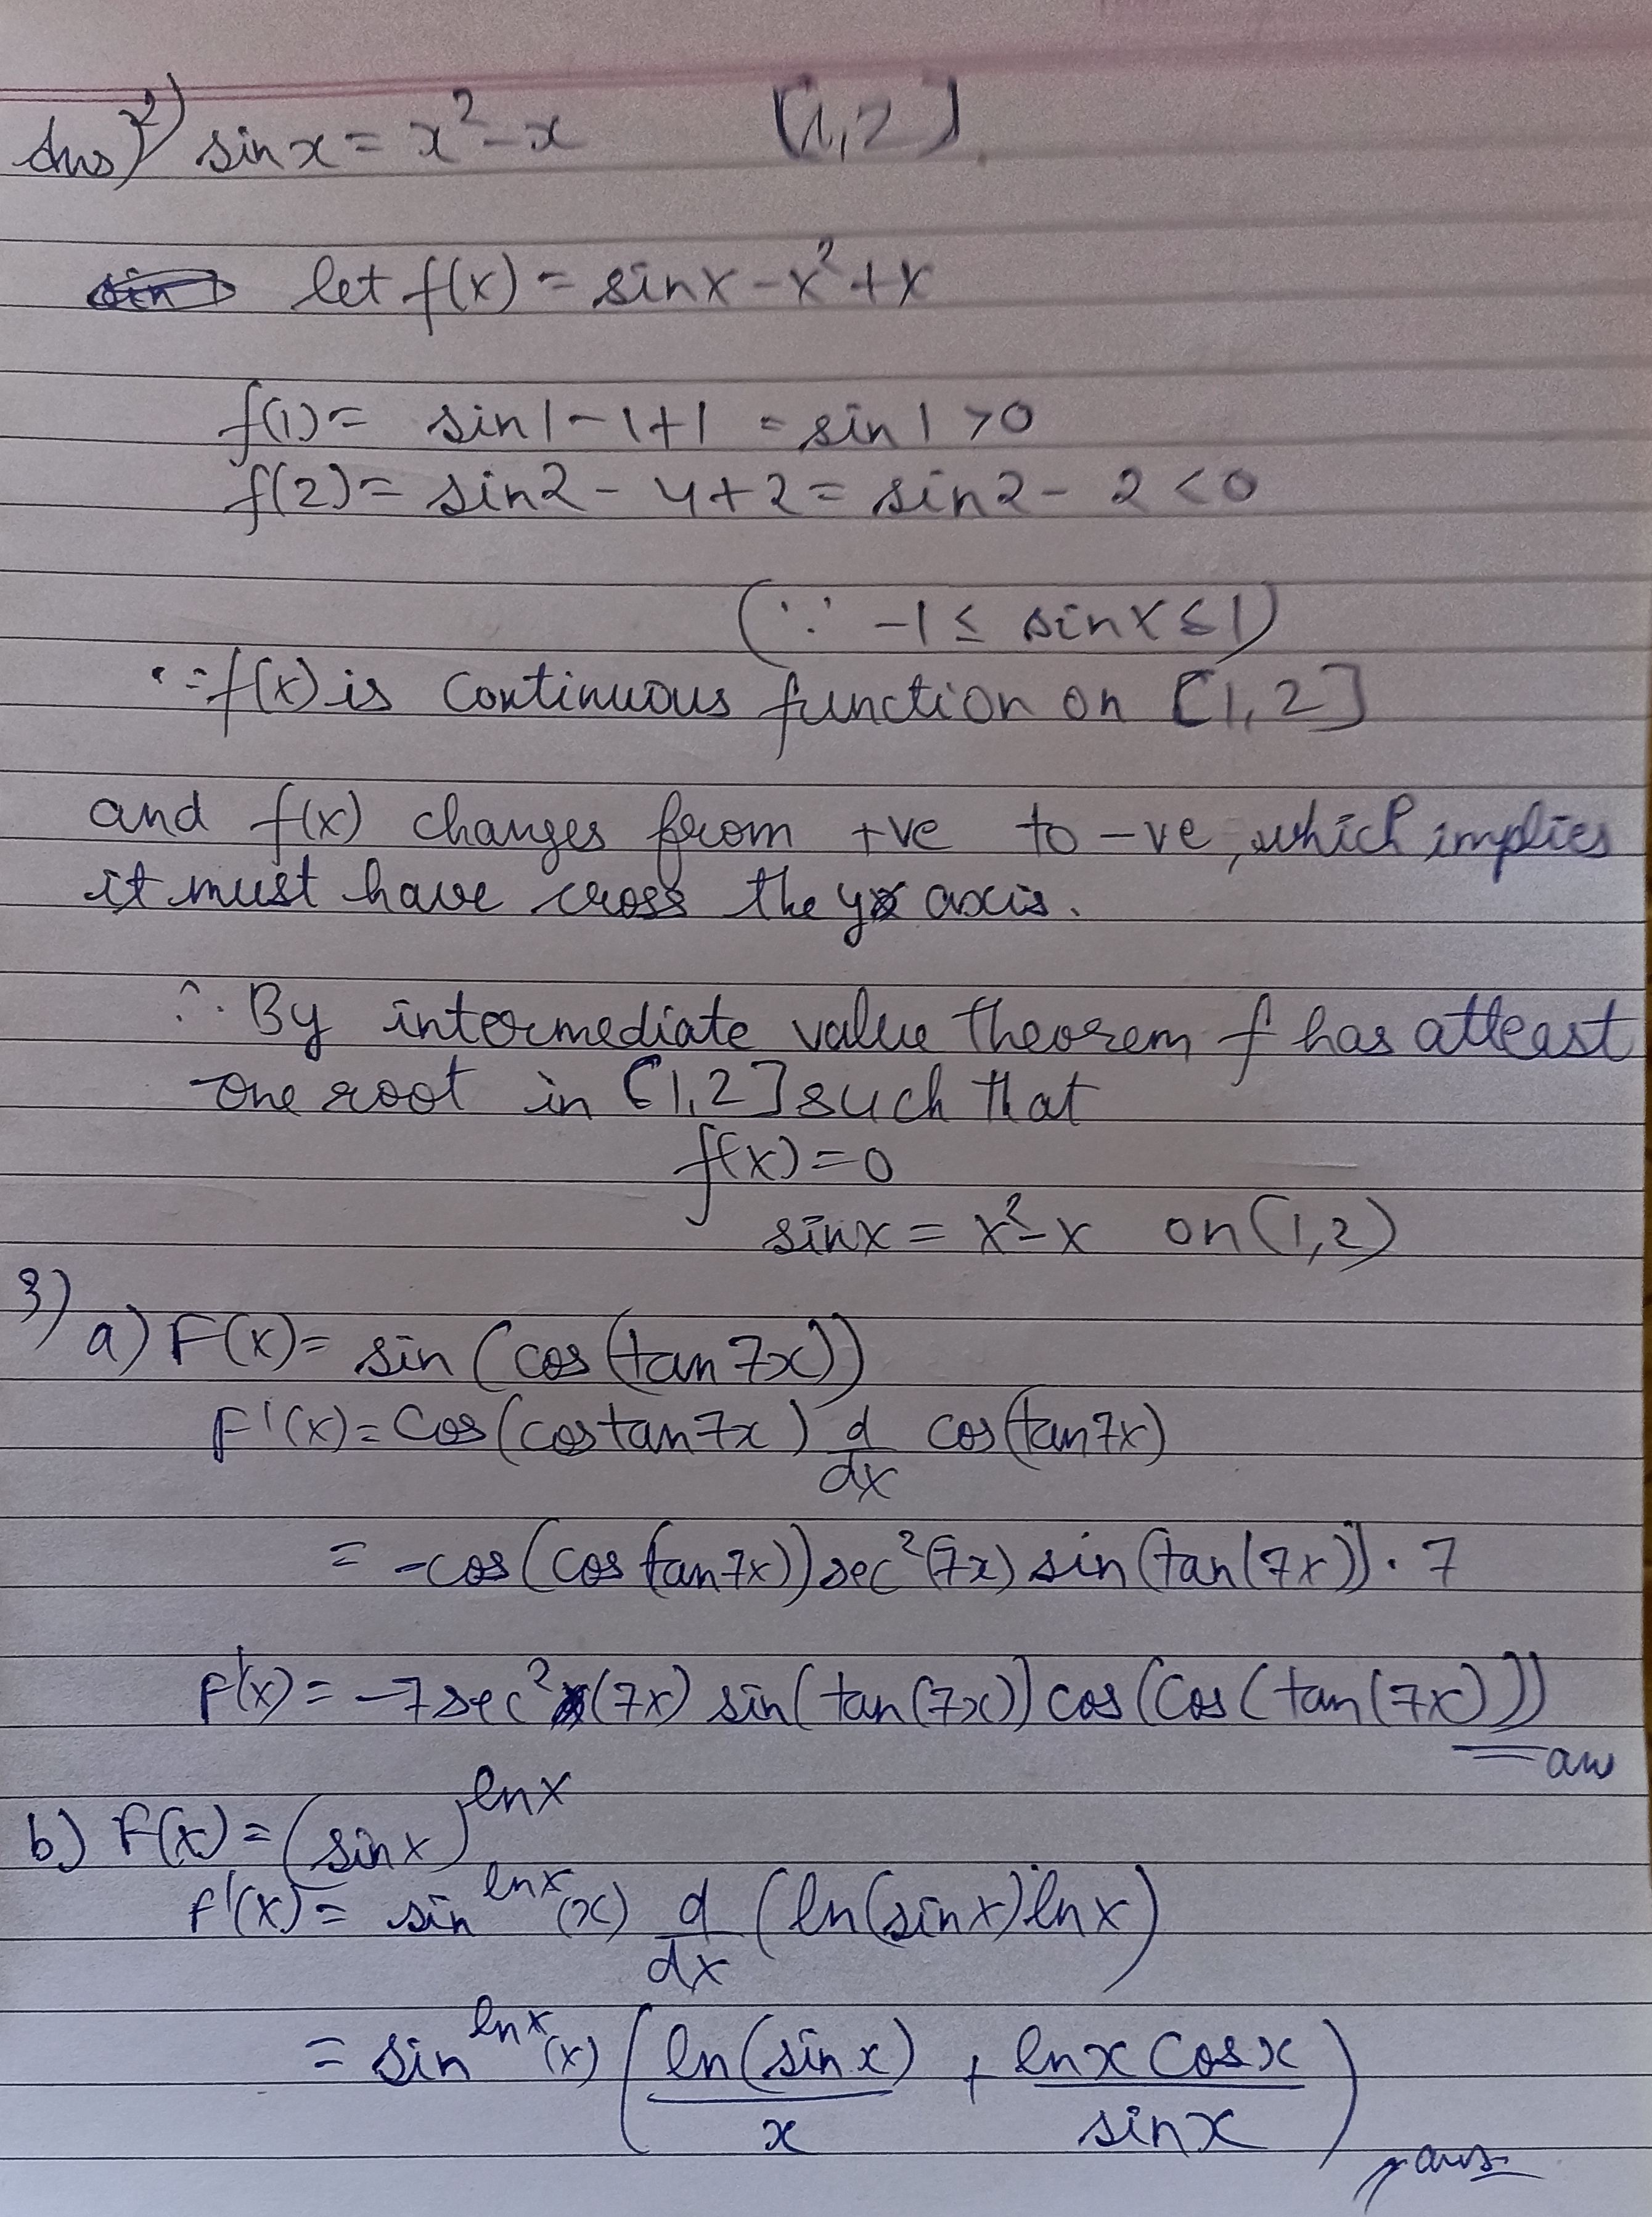 Ans 2) sin x = x² - x [1,2]
let f(x) = sinx - x² + x
f(1) = sin1 - 1 + 1 = sin1 > 0
f(2) = sin2 - 4 + 2 = sin2 - 2 < 0
(∵ -1 ≤ sinx ≤ 1)
∵ f(x) is continuous function on [1,2]
and f(x) changes from +ve to -ve, which implies
it must have cross the y axis.
∴ By intermediate value theorem f has atleast
one root in [1,2] such that
f(x) = 0
sinx = x² - x on (1,2)
3)
a) F(x) = sin (cos (tan 7x))
F'(x) = Cos (cos tan 7x) d/dx cos (tan 7x)
= -cos (cos tan 7x)) sec² (7x) sin (tan (7x)) · 7
F'(x) = -7 sec² (7x) sin (tan (7x)) cos (Cos (tan (7x)))
ans
b) F(x) = (sin x)^lnx
F'(x) = sin^lnx (x) d/dx (ln(sinx) lnx)
= sin^lnx (x) ( ln(sin x)/x + lnx Cosx/sinx )
ans